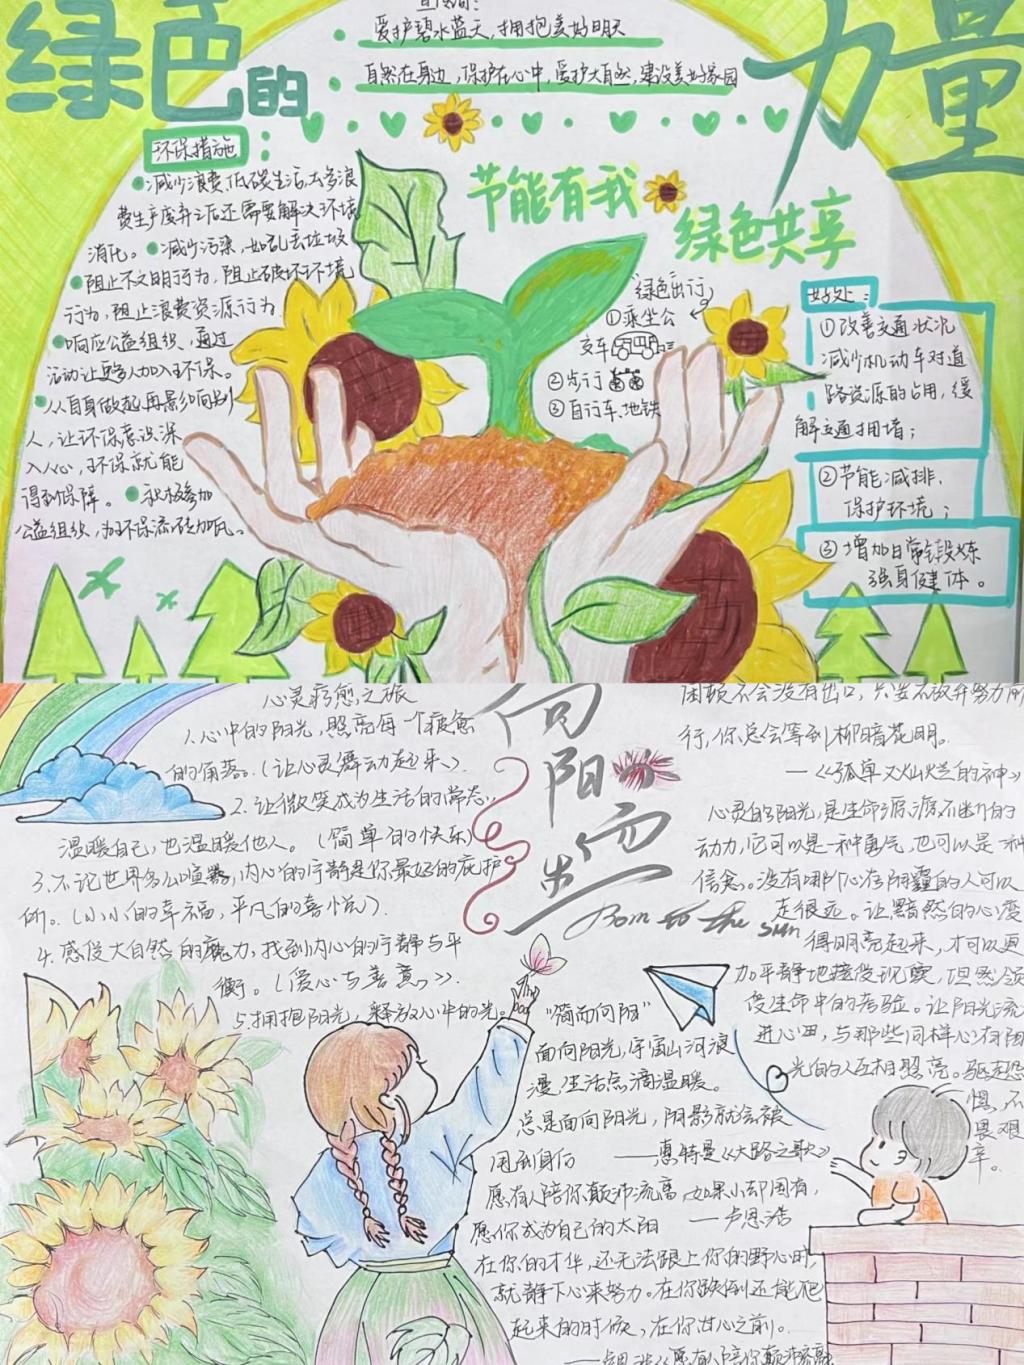 绿色的
力量
宣传语:
爱护碧水蓝天,拥抱美好明天
自然在身边,保护在心中,爱护大自然,建设美好家园
环保措施
减少浪费,低碳生活,太多浪
费生产废弃之后还需要解决环境
消化。减少污染,如乱丢垃圾
阻止不文明行为,阻止破坏环境
行为,阻止浪费资源行为
响应公益组织,通过
活动让更多人加入环保。
从自身做起,再影响别
人,让环保意识深
入人心,环保就能
得到保障。积极参加
公益组织,为环保添砖加瓦。
节能有我
绿色共享
"绿色出行"
①乘坐公
交车
②步行
③自行车、地铁
好处:
①改善交通状况
减少机动车对道
路资源的占用,缓
解交通拥堵;
②节能减排,
保护环境;
③增加日常锻炼
强身健体。
心灵疗愈之旅
1.心中的阳光,照亮每一个疲惫
的角落。(让心灵舞动起来)
2.让微笑成为生活的常态,
温暖自己,也温暖他人。(简单的快乐)
3.不论世界多么喧嚣,内心的宁静是你最好的庇护
所。(小小的幸福,平凡的喜悦)
4.感受大自然的魔力,找到内心的宁静与平
衡。(爱心与善意)
5.拥抱阳光,释放心中的光。
向
阳
而
生
Born to the sun
困顿不会没有出口,只要不放弃努力前
行,你总会等到柳暗花明。
——《孤单又灿烂的神》
心灵的阳光,是生命源源不断的
动力,它可以是一种勇气,也可以是一种
信念。没有哪个心存阴霾的人可以
走很远。让黯然的心变
得明亮起来,才可以更
加平静地接受现实,坦然领
受生命中的考验。让阳光流
进心田,与那些同样心有阳
光的人互相照亮。驱走恐
惧,不
畏艰
辛。
"简而向阳"
面向阳光,宇宙山河浪
漫,生活点滴温暖。
总是面向阳光,阴影就会被
甩到身后——惠特曼《大路之歌》
愿有人陪你颠沛流离,如果小却困有,
愿你成为自己的太阳——卢思浩
在你的才华,还无法跟上你的野心时,
就静下心来努力。在你跌倒还能爬
起来的时候,在你甘心之前。